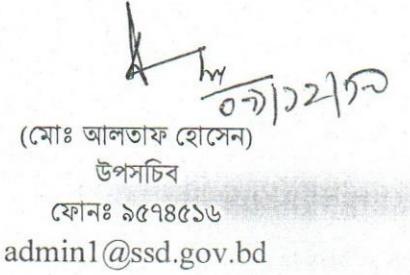 (মোঃ আলতাফ হোসেন)
উপসচিব
ফোনঃ ৯৫৭৪৫১৬
admin1@ssd.gov.bd